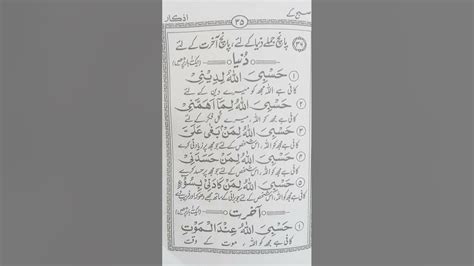 صبح کے ۳۵ اذکار
۳۷ پانچ جملے دنیا کے لئے، پانچ آخرت کے لئے
دُنیا
۱ حَسْبِیَ اللّٰهُ لِدِيْنِیْ
کافی ہے اللہ مجھ کو میرے دین کے لئے
۲ حَسْبِیَ اللّٰهُ لِمَا اَهَمَّنِیْ
کافی ہے مجھ کو اللہ، میرے کل فکر کے لئے
۳ حَسْبِیَ اللّٰهُ لِمَنْ بَغٰی عَلَیَّ
کافی ہے مجھ کو اللہ، اس شخص کے لئے جو مجھ پر زیادتی کرے
۴ حَسْبِیَ اللّٰهُ لِمَنْ حَسَدَنِیْ
کافی ہے مجھ کو اللہ، اس شخص کے لئے جو مجھ پر حسد کرے
۵ حَسْبِیَ اللّٰهُ لِمَنْ كَادَنِیْ بِسُوْٓءٍ
کافی ہے مجھ کو اللہ، اس شخص کے لئے جو برائی کے ساتھ مجھے دھوکہ اور فریب دے
آخرت
۱ حَسْبِیَ اللّٰهُ عِنْدَ الْمَوْتِ
کافی ہے مجھ کو اللہ، موت کے وقت